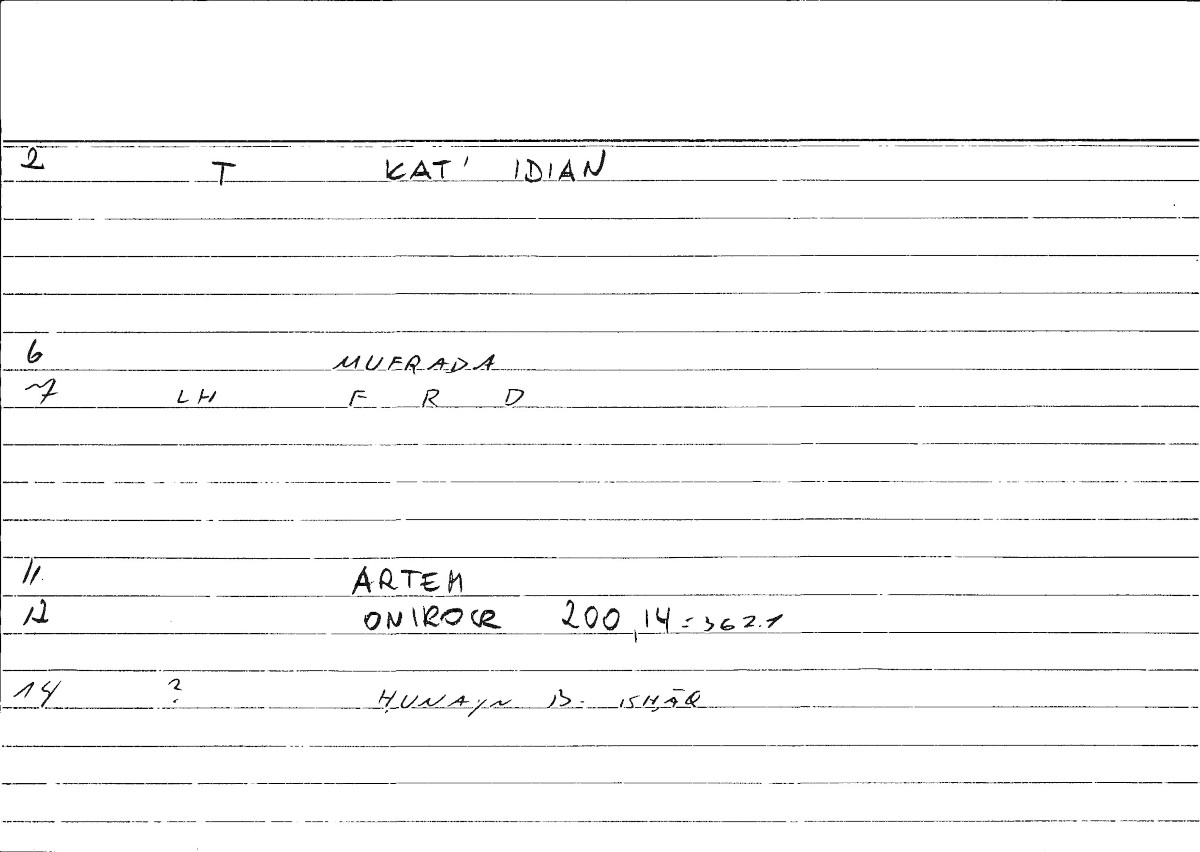 2 T KAT' IDIAN
6 MUFRADA
7 LH F R D
11 ARTEM
12 ONIROCR 200,14=362.1
14 ? ḤUNAYN B. ISḤĀQ